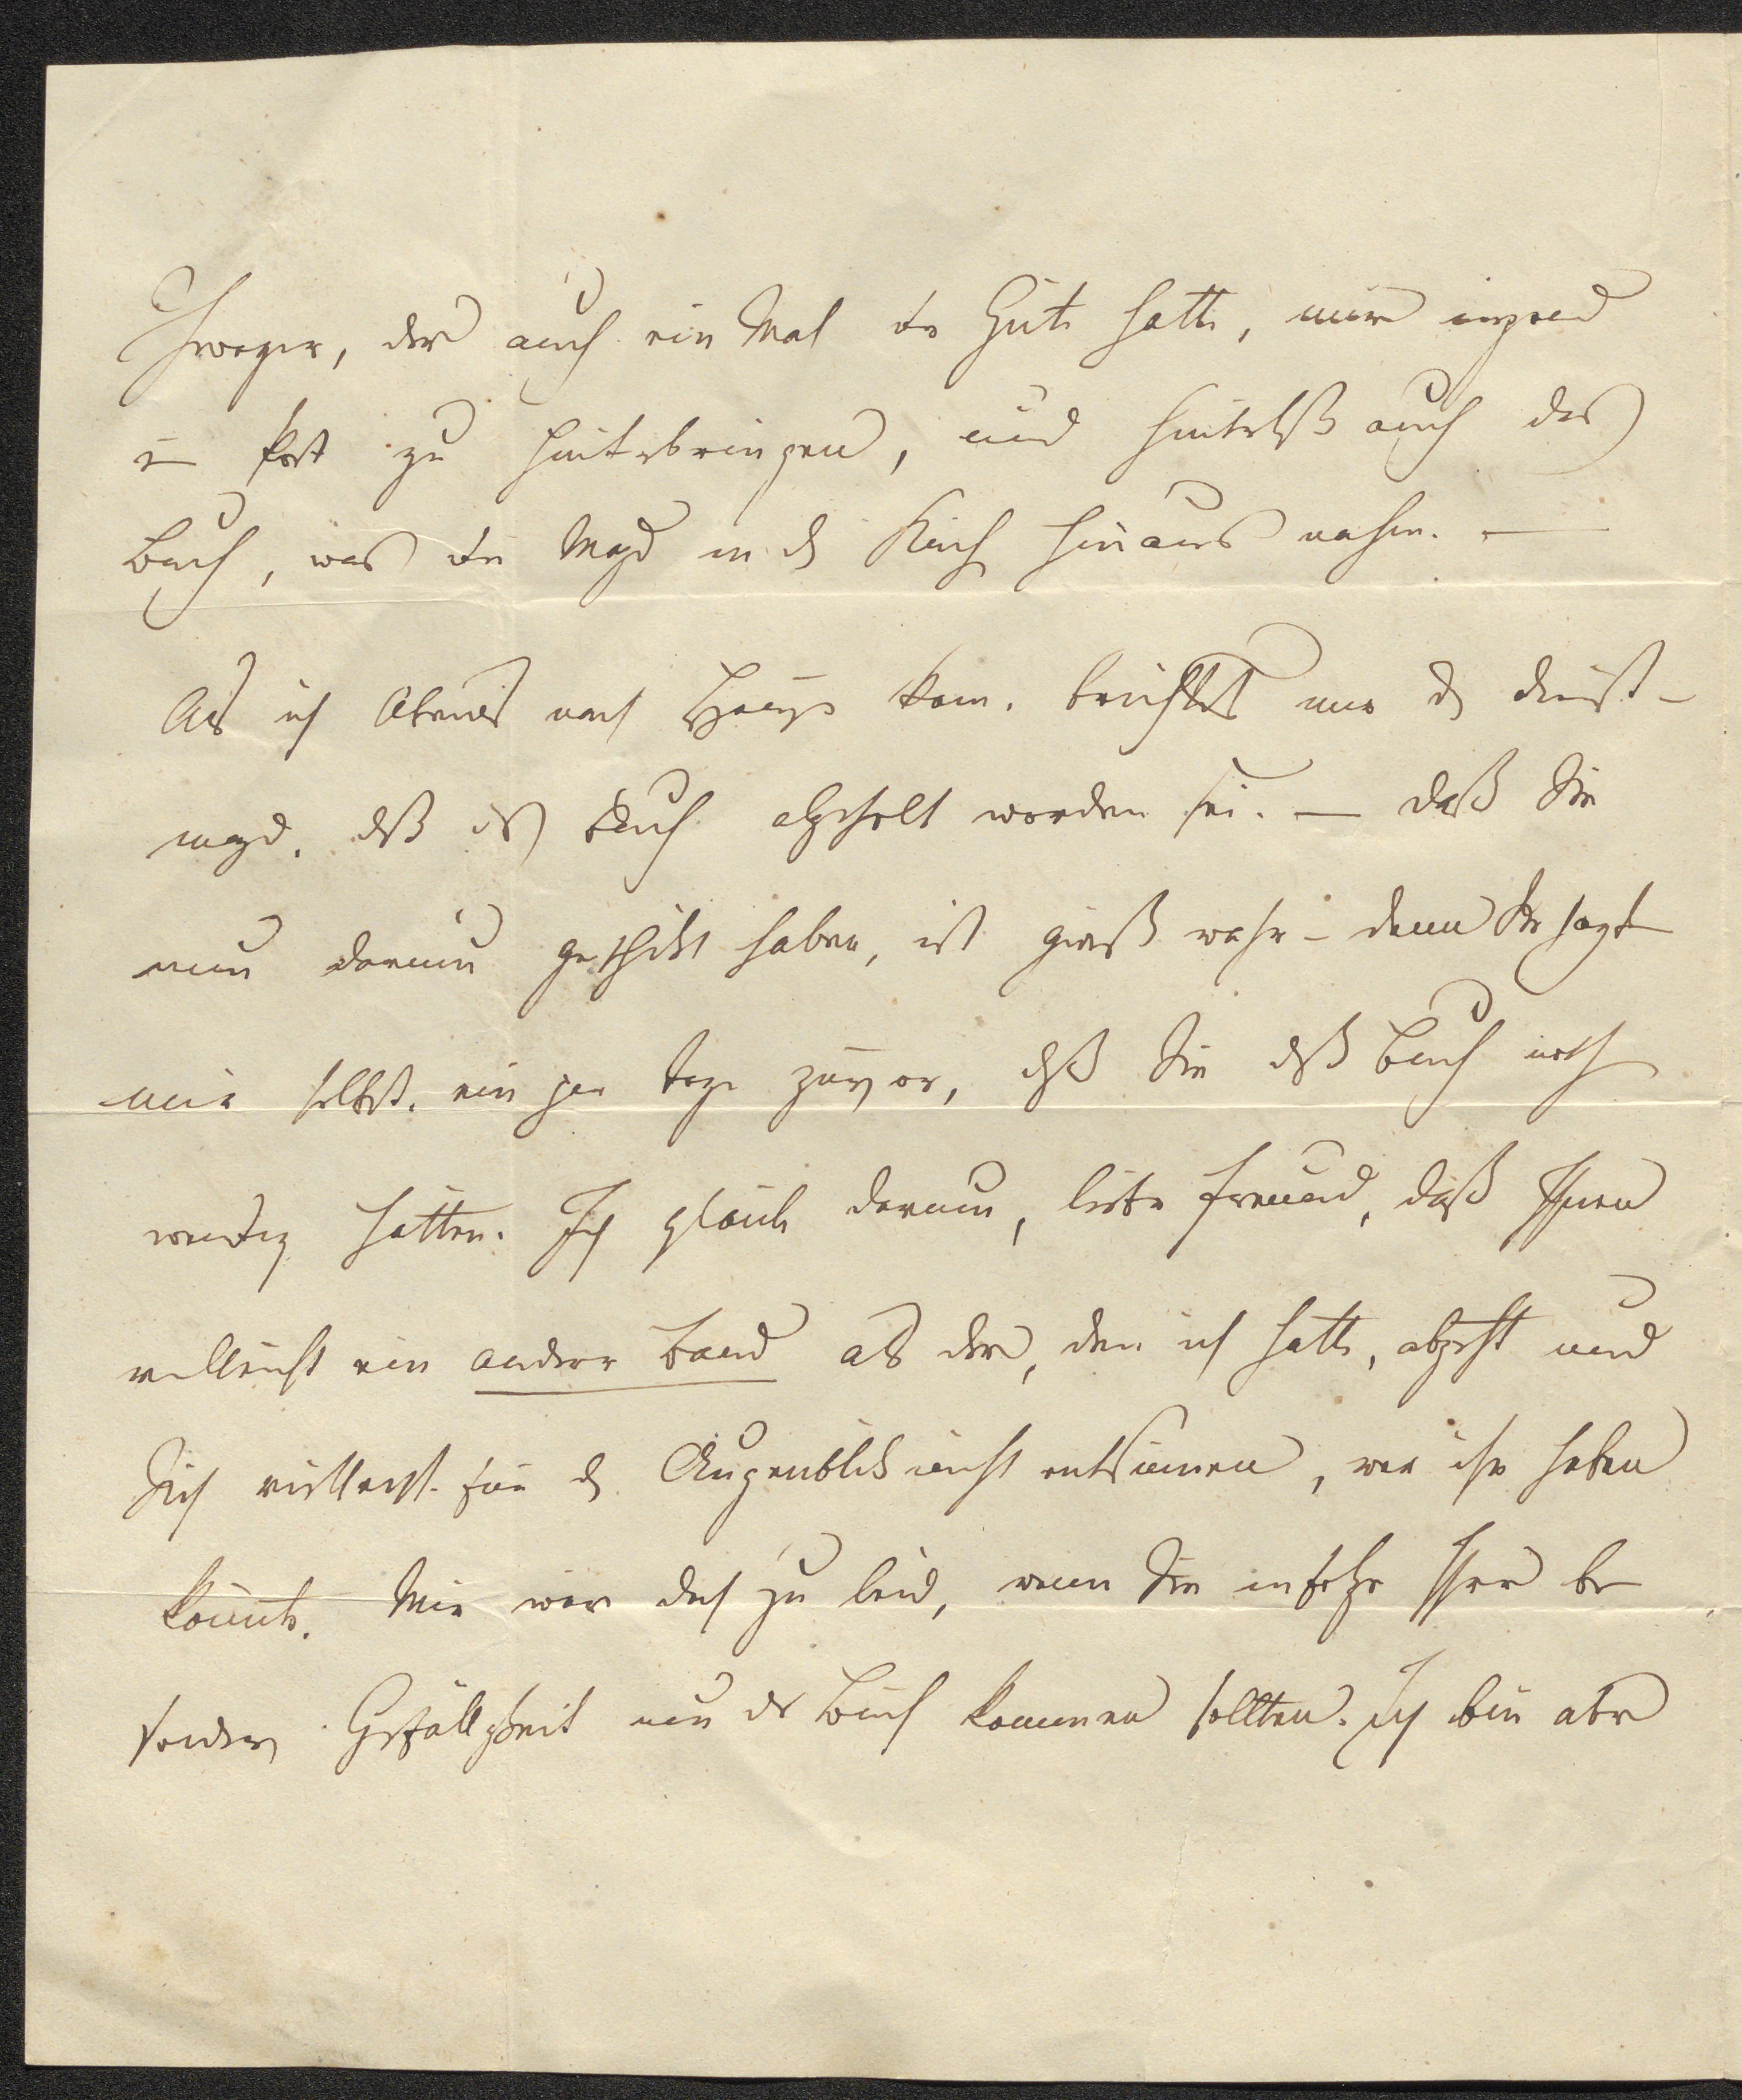 der auch ein Mal die Güte hatte, mir irgend
zu hinterbringen, und hinterließ auch das
Buch, was die Magd in die Küch hinaus nahm. —
Als ich Abends nach Hause kam. berichtet mir d dienst-
magd. daß das Buch abgeholt worden sei. — daß Sie
nun darum geschickt haben, ist gewiß wahr – denn Sie sagten
mir selbst. ein par Tage zuvor, daß Sie daß Buch noth
wendig hätten. Ich glaube darum, lieber Freund, daß Ihnen
vielleicht ein anderer Band als der, den ich hatte, abgeht und
Sich vielleicht für d Augenblick nicht entsinnen, wer ihn haben
könnte. Mir wär doch zu leid, wenn Sie in Folge Ihrer be
sondern Gefälligkeit um das Buch kommen sollten. Ich bin aber